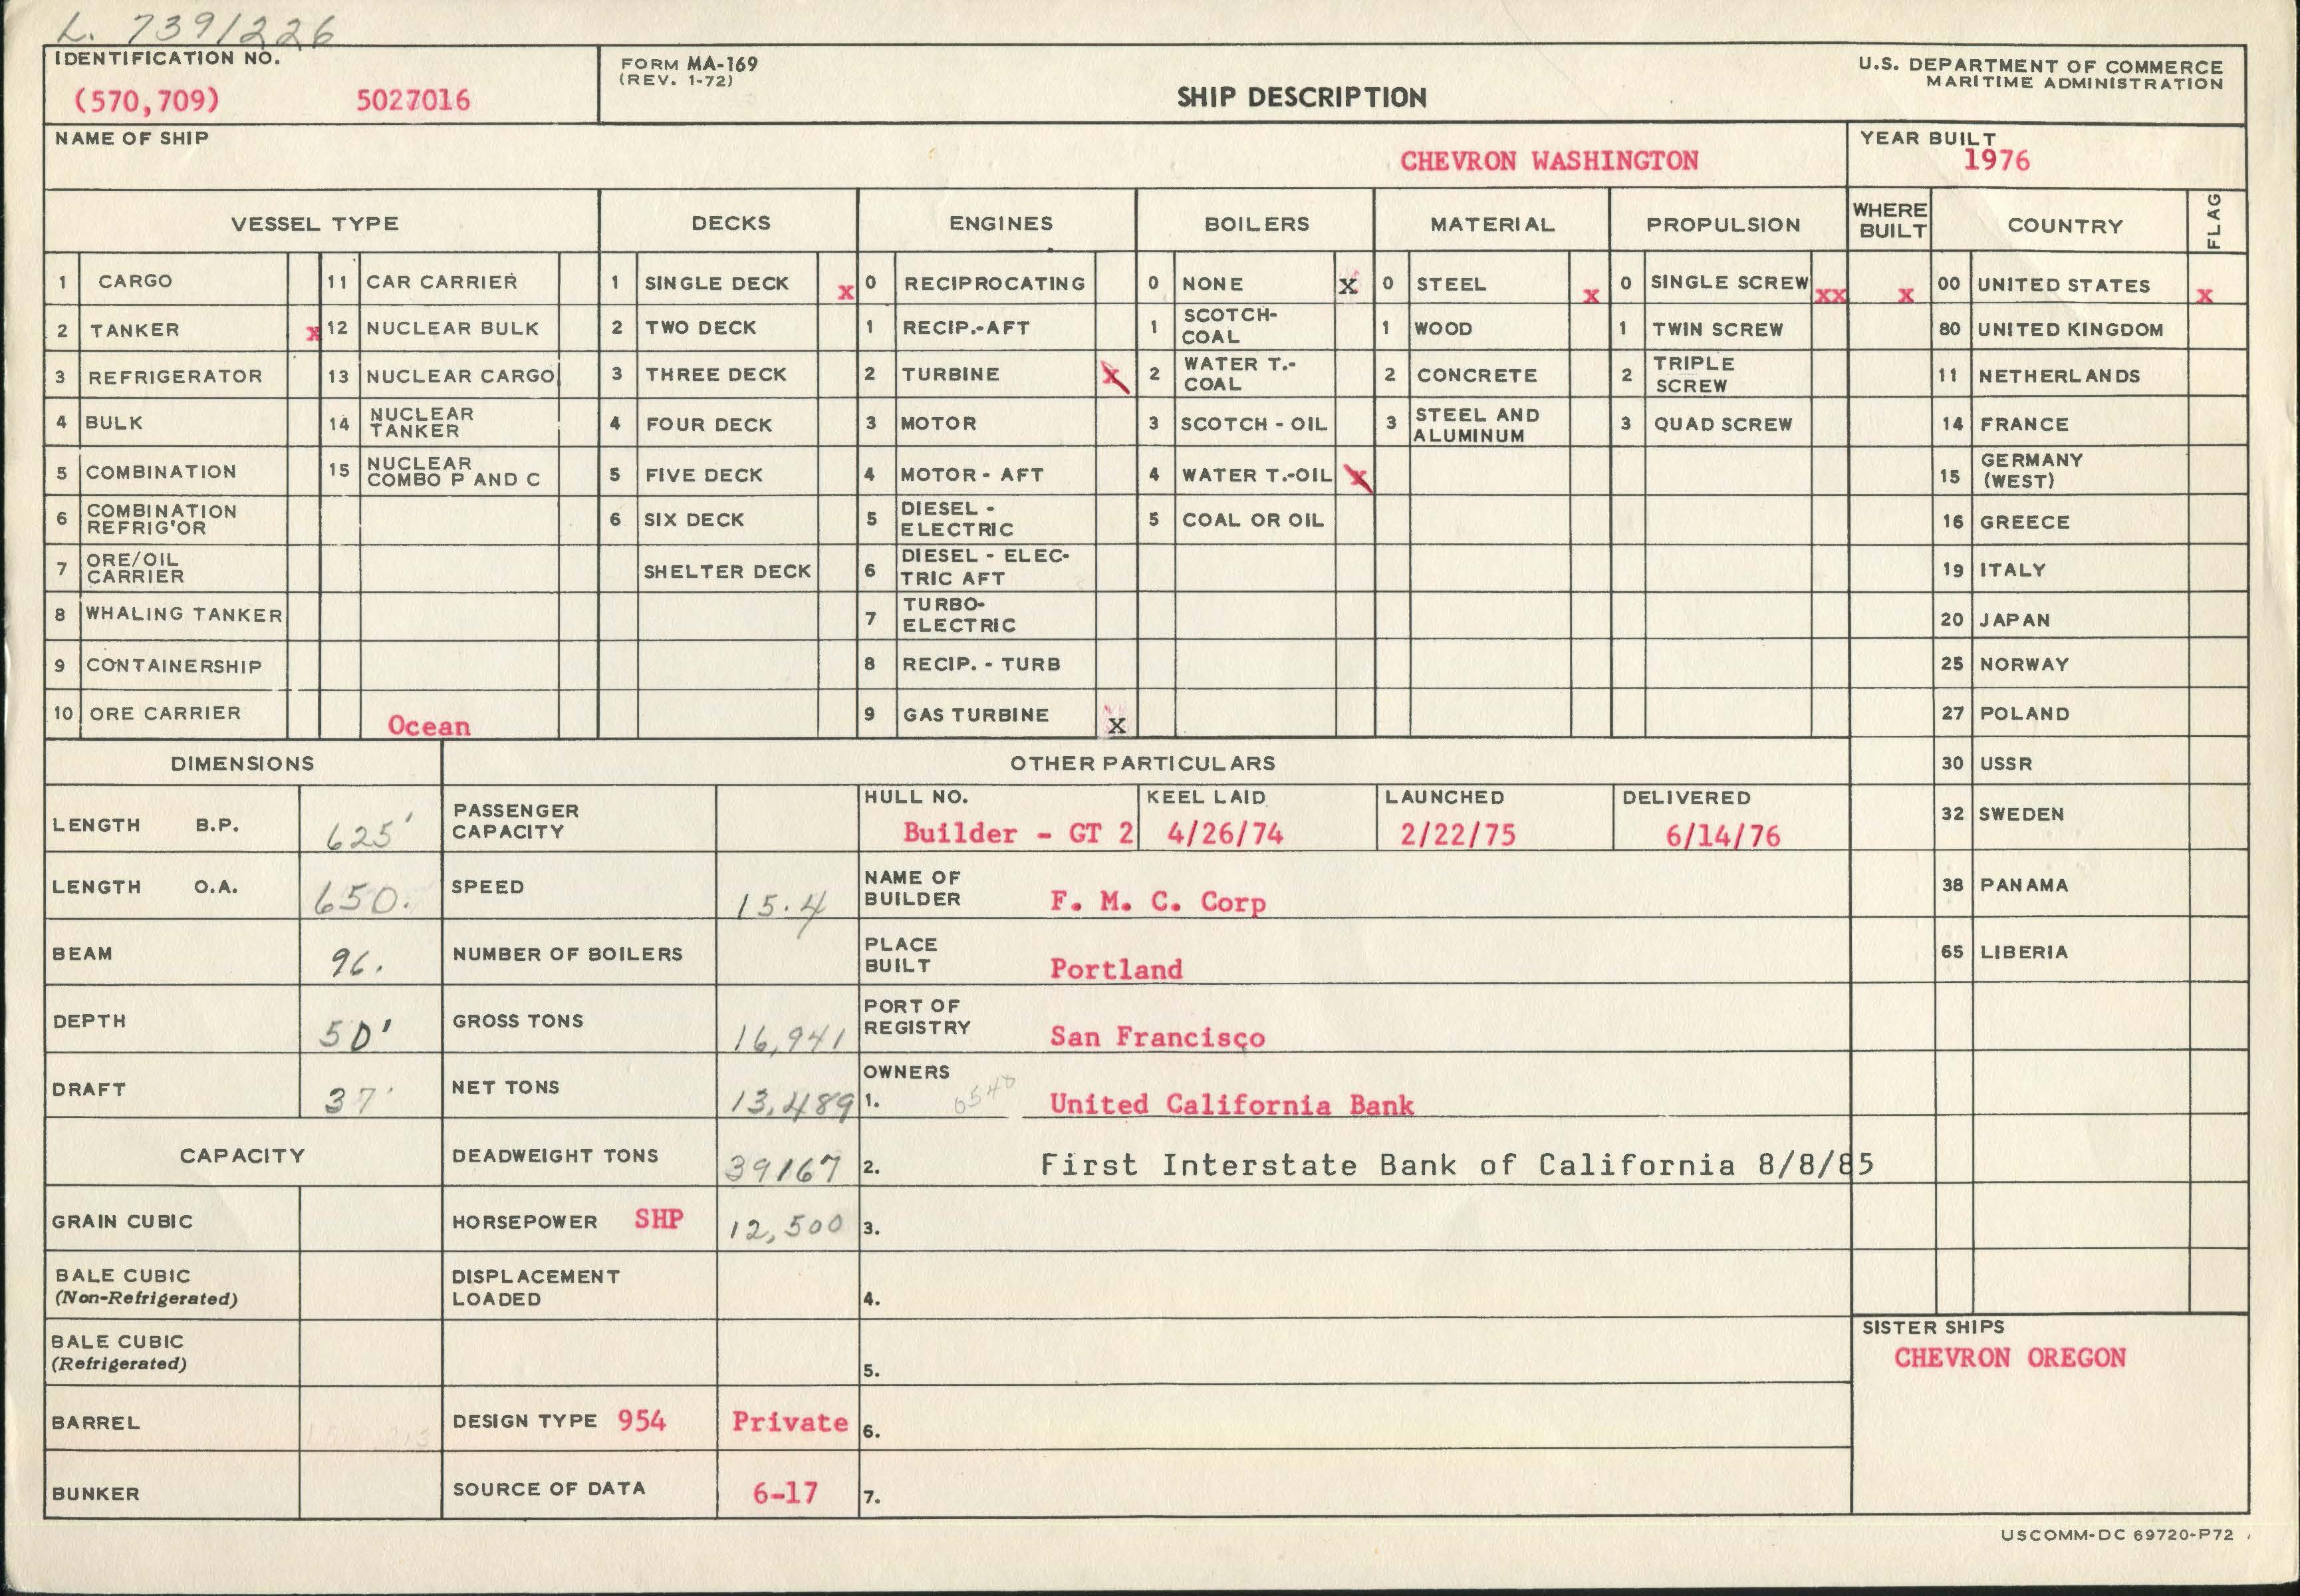 L. 7391226
IDENTIFICATION NO.
(570,709) 5027016
FORM MA-169
(REV. 1-72)
SHIP DESCRIPTION
U.S. DEPARTMENT OF COMMERCE
MARITIME ADMINISTRATION
NAME OF SHIP
CHEVRON WASHINGTON
YEAR BUILT
1976
VESSEL TYPE DECKS ENGINES BOILERS MATERIAL PROPULSION WHERE BUILT COUNTRY FLAG
1 CARGO 11 CAR CARRIER 1 SINGLE DECK x 0 RECIPROCATING 0 NONE x 0 STEEL x 0 SINGLE SCREW xx x 00 UNITED STATES x
2 TANKER x 12 NUCLEAR BULK 2 TWO DECK 1 RECIP.-AFT 1 SCOTCH-COAL 1 WOOD 1 TWIN SCREW 80 UNITED KINGDOM
3 REFRIGERATOR 13 NUCLEAR CARGO 3 THREE DECK 2 TURBINE x 2 WATER T.-COAL 2 CONCRETE 2 TRIPLE SCREW 11 NETHERLANDS
4 BULK 14 NUCLEAR TANKER 4 FOUR DECK 3 MOTOR 3 SCOTCH - OIL 3 STEEL AND ALUMINUM 3 QUAD SCREW 14 FRANCE
5 COMBINATION 15 NUCLEAR COMBO P AND C 5 FIVE DECK 4 MOTOR - AFT 4 WATER T.-OIL x 15 GERMANY (WEST)
6 COMBINATION REFRIG'OR 6 SIX DECK 5 DIESEL - ELECTRIC 5 COAL OR OIL 16 GREECE
7 ORE/OIL CARRIER SHELTER DECK 6 DIESEL - ELEC-TRIC AFT 19 ITALY
8 WHALING TANKER 7 TURBO-ELECTRIC 20 JAPAN
9 CONTAINERSHIP 8 RECIP. - TURB 25 NORWAY
10 ORE CARRIER Ocean 9 GAS TURBINE x 27 POLAND
DIMENSIONS OTHER PARTICULARS 30 USSR
LENGTH B.P. 625' PASSENGER CAPACITY HULL NO. Builder - GT 2 KEEL LAID 4/26/74 LAUNCHED 2/22/75 DELIVERED 6/14/76 32 SWEDEN
LENGTH O.A. 650. SPEED 15.4 NAME OF BUILDER F. M. C. Corp 38 PANAMA
BEAM 96. NUMBER OF BOILERS PLACE BUILT Portland 65 LIBERIA
DEPTH 50' GROSS TONS 16,941 PORT OF REGISTRY San Francisco
DRAFT 37' NET TONS 13,489 OWNERS 1. 6540 United California Bank
CAPACITY DEADWEIGHT TONS 39167 2. First Interstate Bank of California 8/8/85
GRAIN CUBIC HORSEPOWER SHP 12,500 3.
BALE CUBIC (Non-Refrigerated) DISPLACEMENT LOADED 4.
SISTER SHIPS
CHEVRON OREGON
BALE CUBIC (Refrigerated) 5.
BARREL DESIGN TYPE 954 Private 6.
BUNKER SOURCE OF DATA 6-17 7.
USCOMM-DC 69720-P72